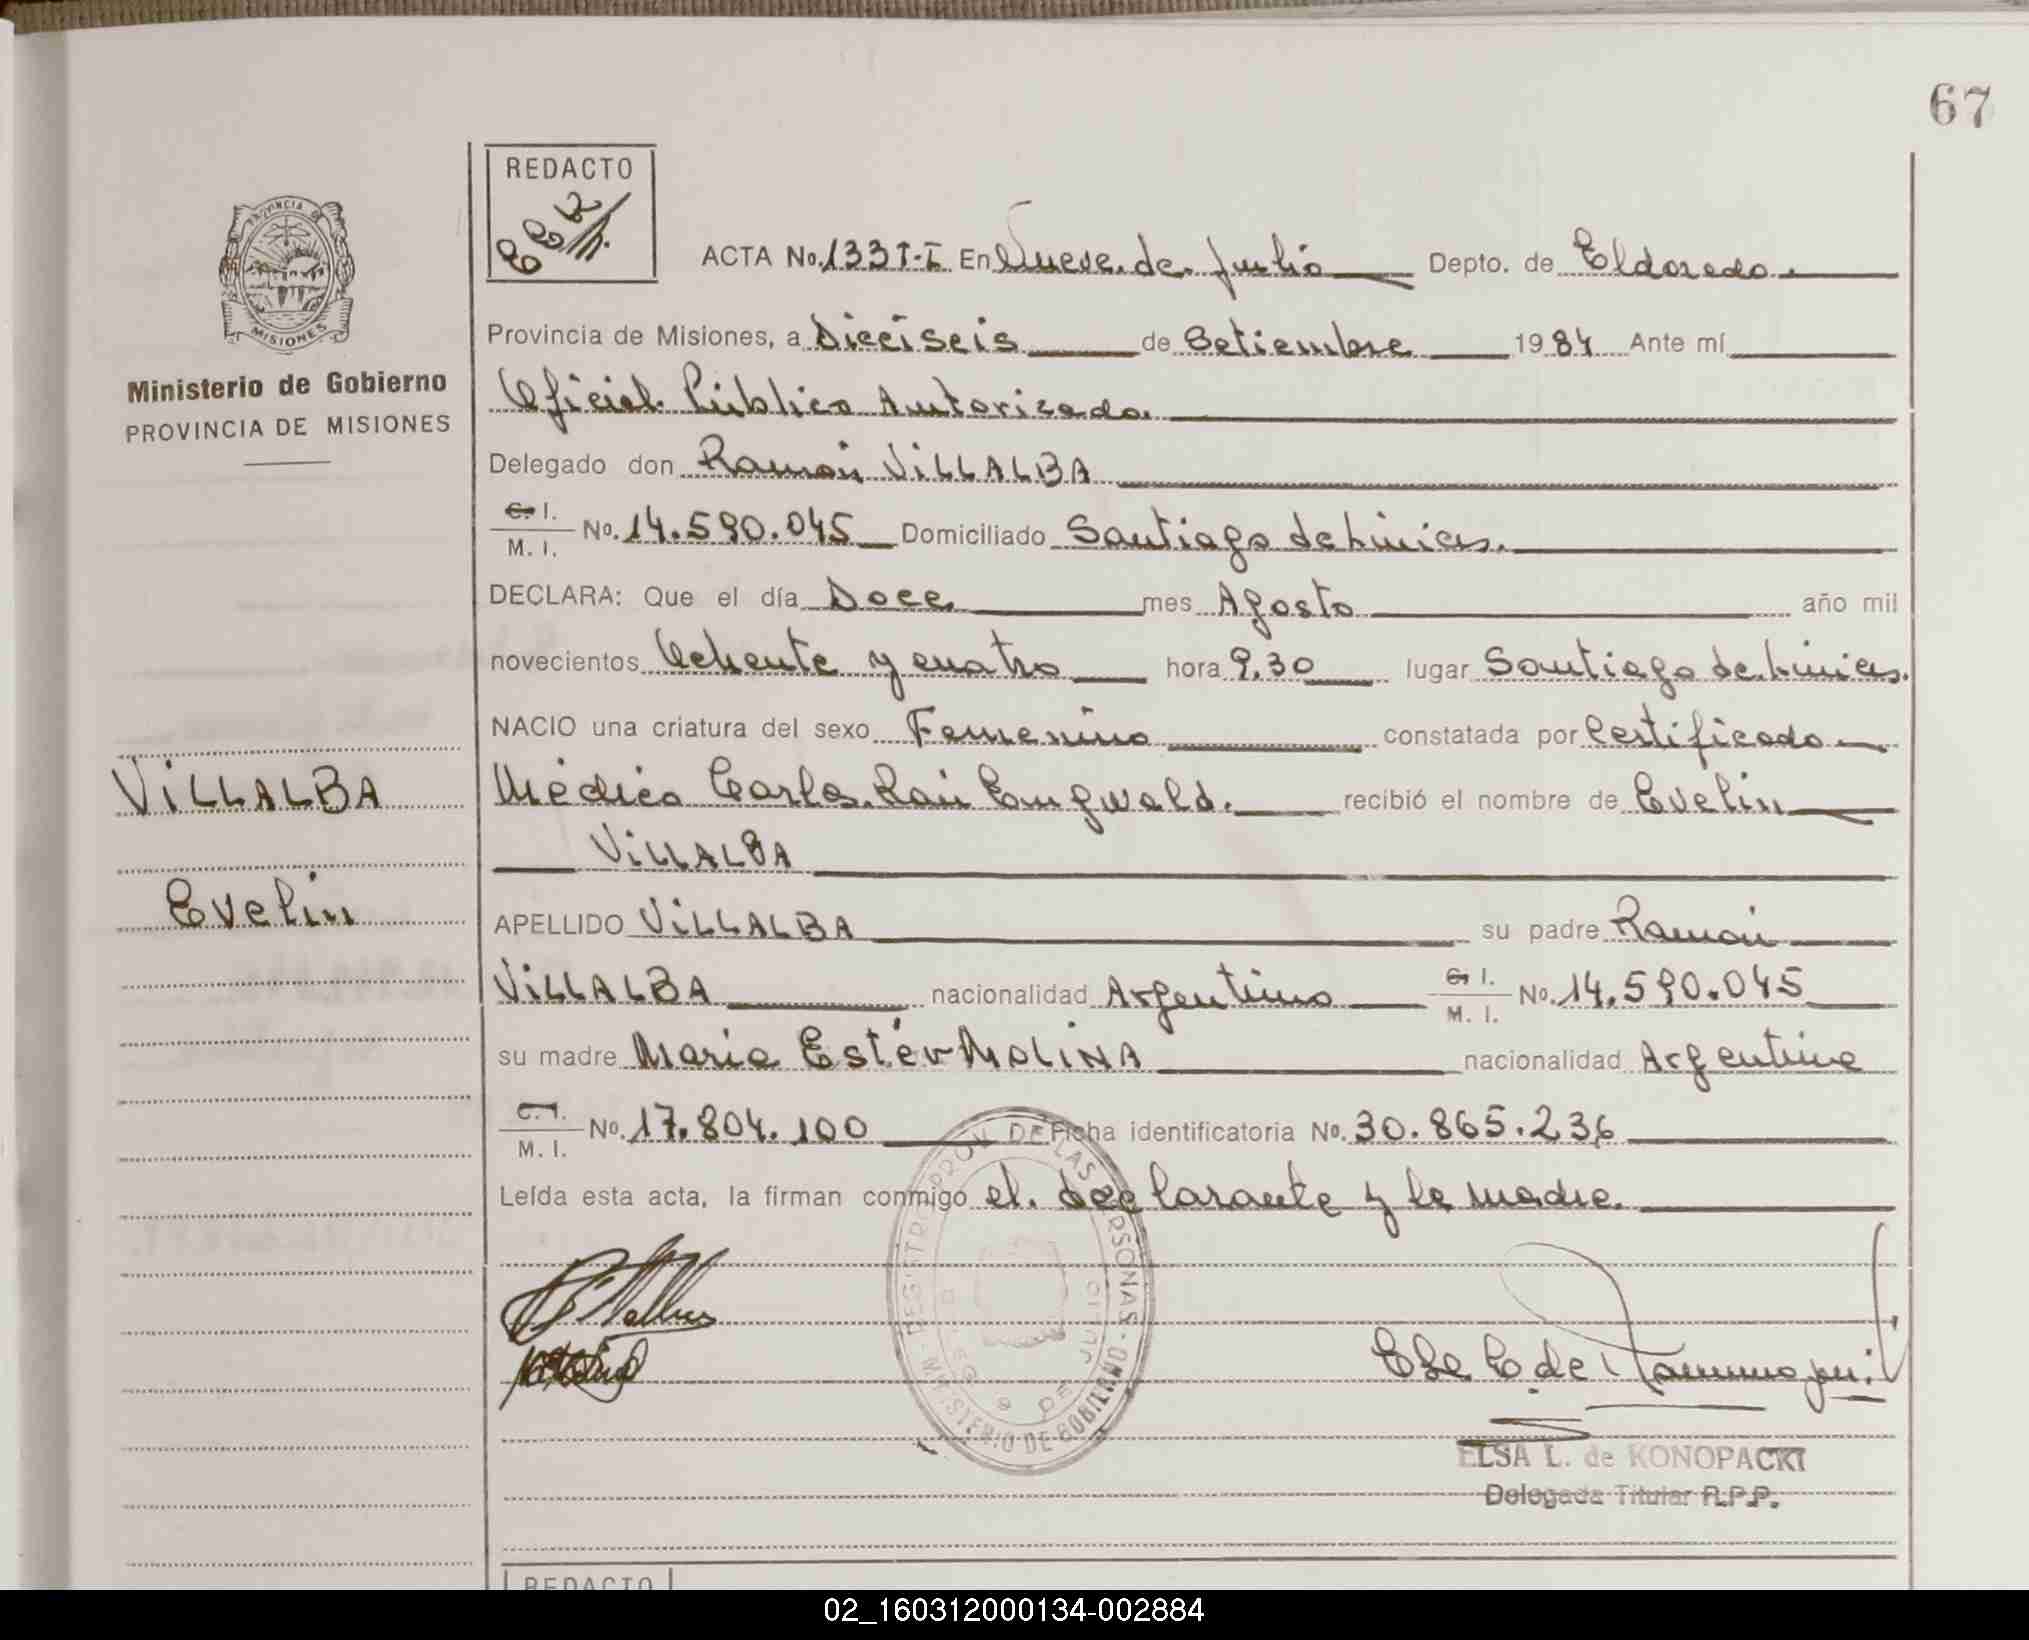 67
REDACTO
PROVINCIA DE
MISIONES
Ministerio de Gobierno
PROVINCIA DE MISIONES
ACTA No. 133 T-I En Nueve de Julio Depto. de Eldorado
Provincia de Misiones, a Dieciseis de Setiembre 1984 Ante mí
Oficial Público Autorizado.
Delegado don Ramón VILLALBA
C. I. M. I. No. 14.590.045 Domiciliado Santiago de Liniers.
DECLARA: Que el día Doce mes Agosto año mil
novecientos Ochenta y cuatro hora 9.30 lugar Santiago de Liniers.
NACIO una criatura del sexo Femenino constatada por Certificado
Médico Carlos recibió el nombre de Evelin
VILLALBA
VILLALBA
Evelin
APELLIDO VILLALBA su padre Ramón
VILLALBA nacionalidad Argentino C. I. M. I. No. 14.590.045
su madre María Estér MOLINA nacionalidad Argentina
C. I. M. I. No. 17.804.100 Ficha identificatoria No. 30.865.236
Leída esta acta, la firman conmigo el declarante y la madre.
REGISTRO PROV. DE LAS PERSONAS - MINISTERIO DE GOBIERNO
9 DE JULIO
ELSA L. de KONOPACKI
Delegada Titular R.P.P.
REDACTO
02_160312000134-002884